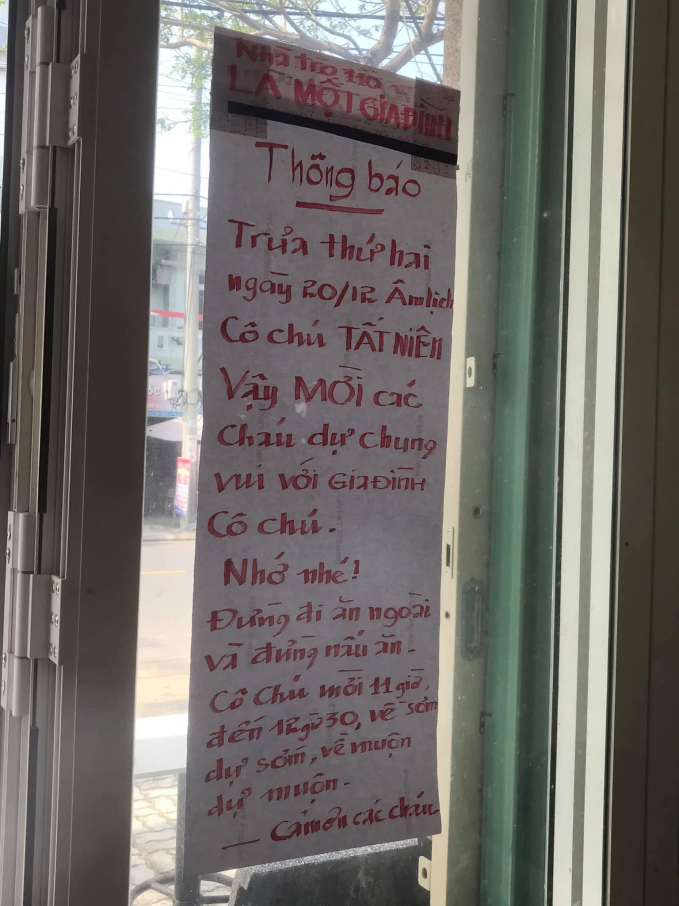 Nhà trọ
LÀ MỘT GIA ĐÌNH
Thông báo
Trưa thứ hai
ngày 20/12 Âm lịch
Cô chú TẤT NIÊN
Vậy MỜI các
Cháu dự chung
vui với GIA ĐÌNH
Cô chú.
Nhớ nhé!
Đừng đi ăn ngoài
và đừng nấu ăn.
Cô Chú mời 11 giờ,
đến 12 giờ 30, về sớm
dự sớm, về muộn
dự muộn.
— Cảm ơn các cháu